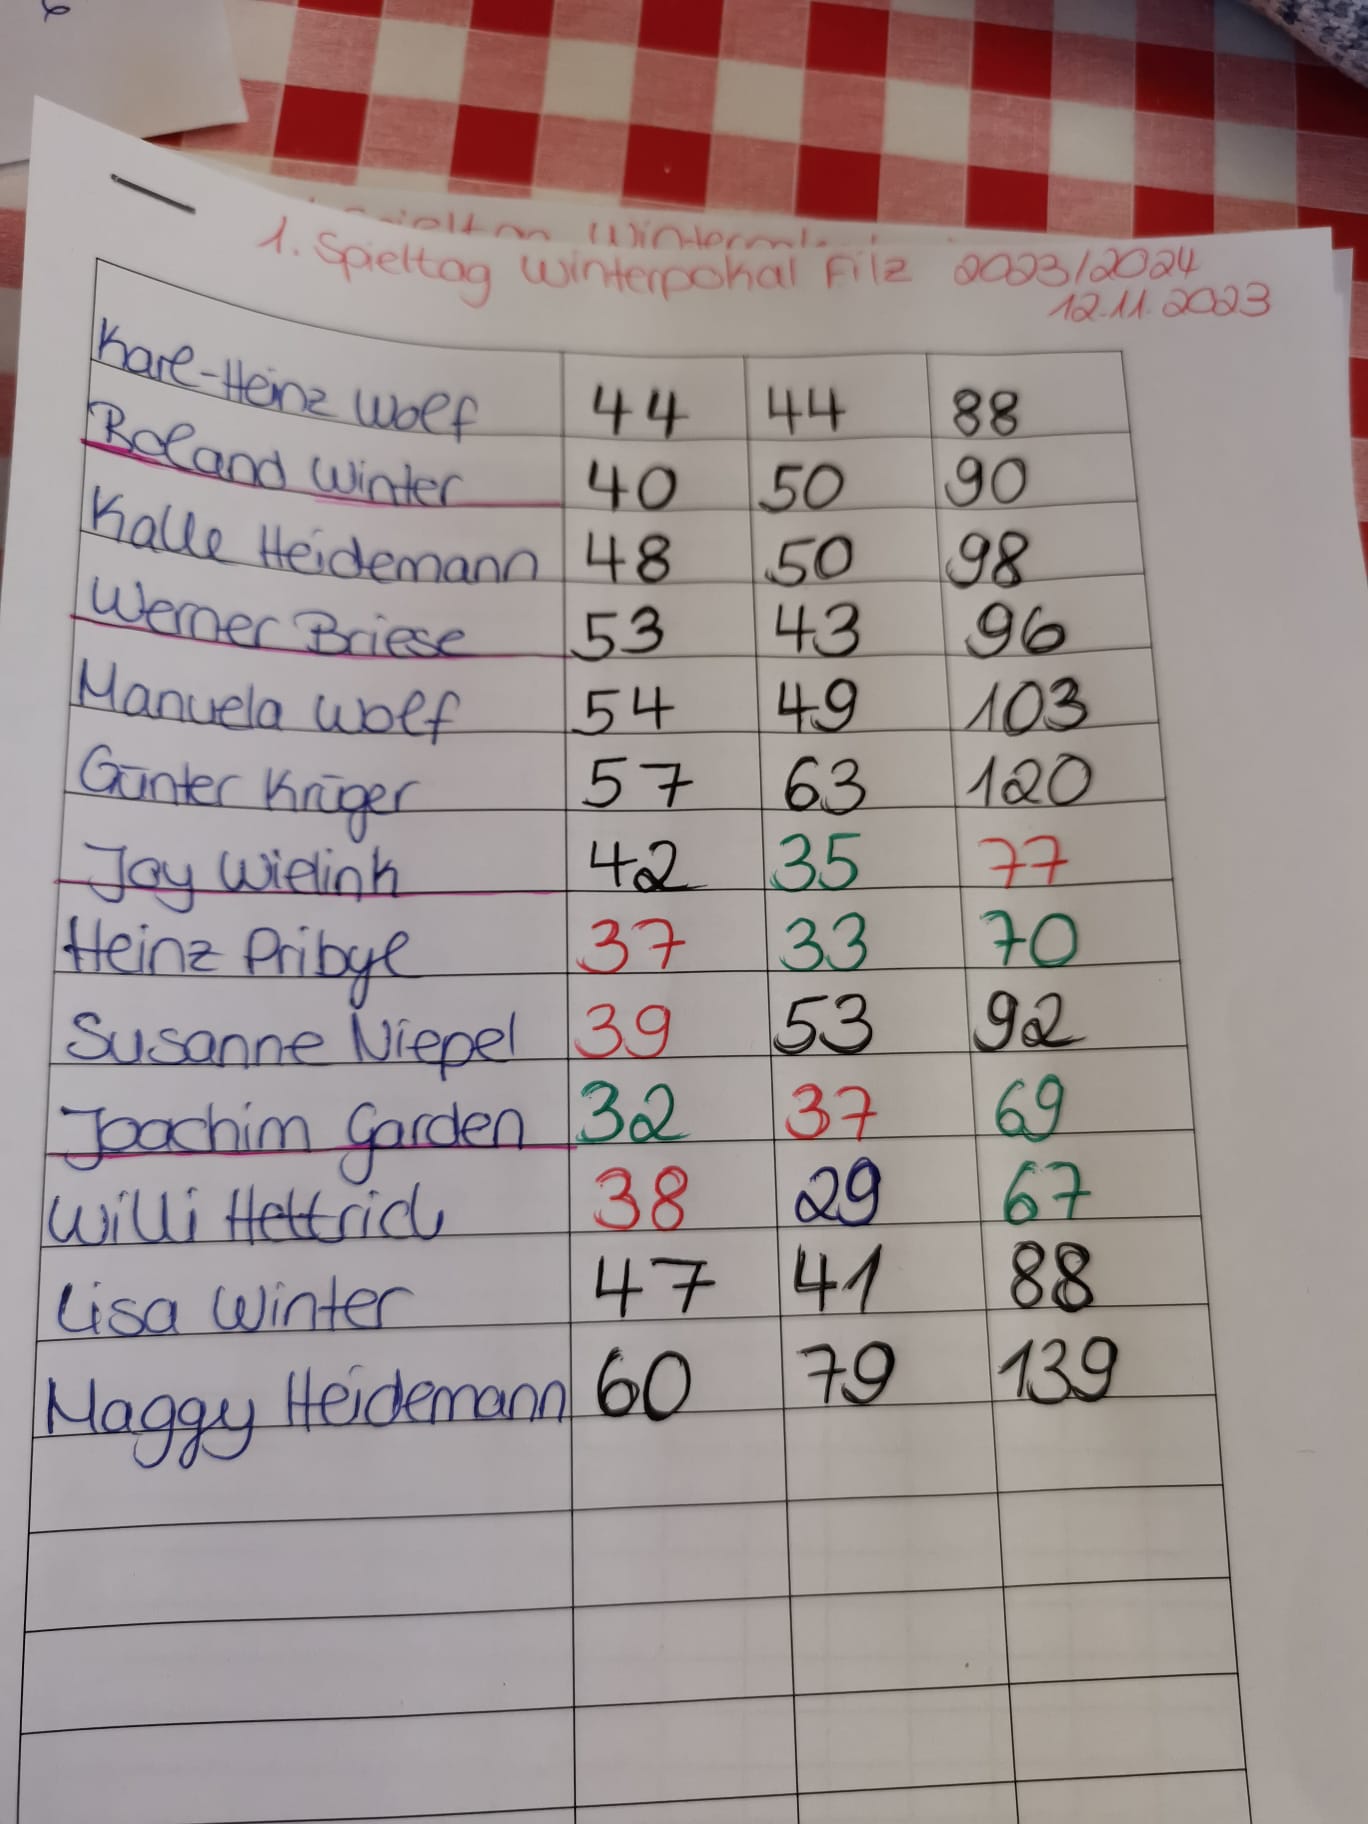 1. Spieltag Winterpokal Filz 2023/2024
12.11.2023
Karl-Heinz Wolf 44 44 88
Roland Winter 40 50 90
Kalle Heidemann 48 50 98
Werner Briese 53 43 96
Manuela Wolf 54 49 103
Günter Krüger 57 63 120
Joy Wielink 42 35 77
Heinz Pribyl 37 33 70
Susanne Niepel 39 53 92
Joachim Garden 32 37 69
Willi Hettrich 38 29 67
Lisa Winter 47 41 88
Maggy Heidemann 60 79 139